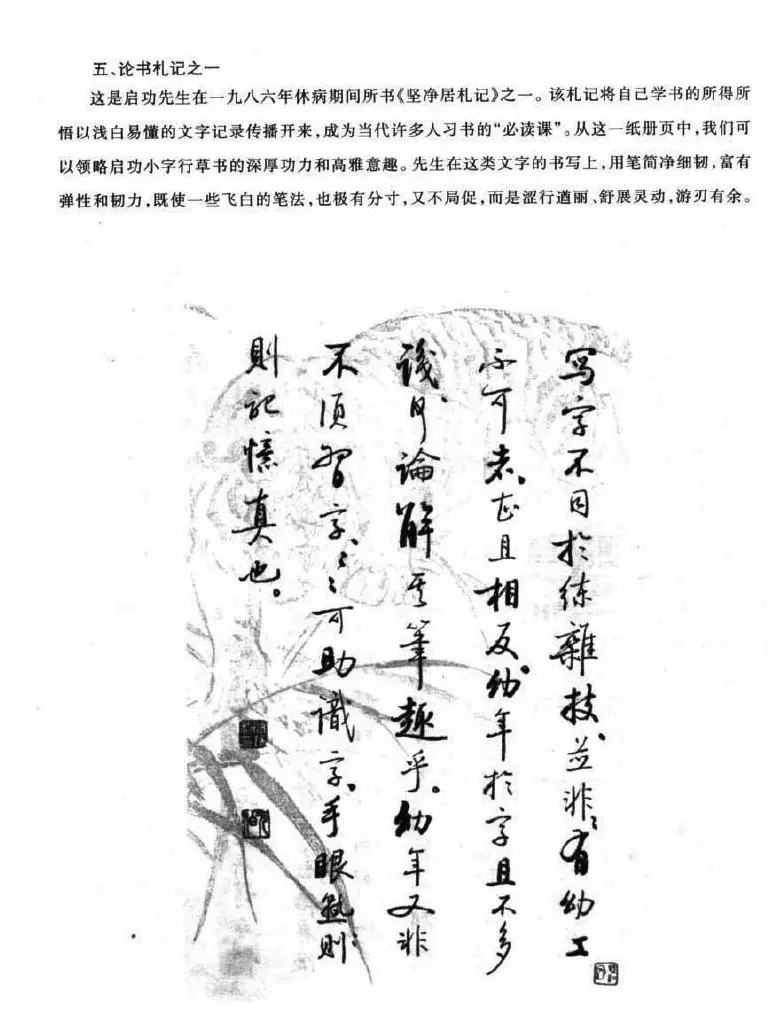 五、论书札记之一
这是启功先生在一九八六年休病期间所书《坚净居札记》之一。该札记将自己学书的所得所
悟以浅白易懂的文字记录传播开来,成为当代许多人习书的“必读课”。从这一纸册页中,我们可
以领略启功小字行草书的深厚功力和高雅意趣。先生在这类文字的书写上,用笔简净细韧,富有
弹性和韧力,既使一些飞白的笔法,也极有分寸,又不局促,而是涩行遒丽、舒展灵动,游刃有余。
寫字不同於練雜技、並非〻有幼工
不可者、甚且相反。幼年於字且不多
識、何論解其筆趣乎。幼年又非
不須習字、〻〻可助識字、手眼熟則
則記憶真也。